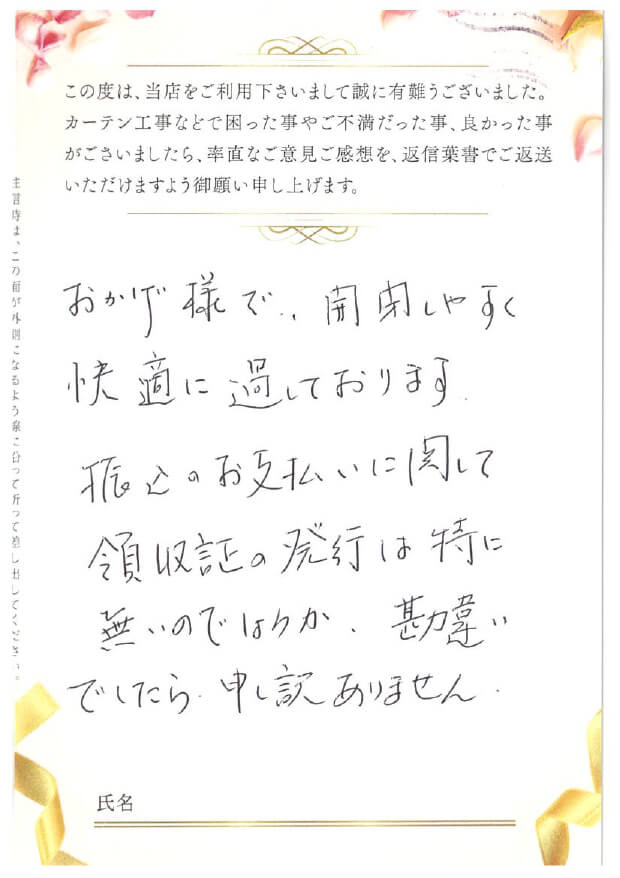 この度は、当店をご利用下さいまして誠に有難うございました。
カーテン工事などで困った事やご不満だった事、良かった事
がございましたら、率直なご意見ご感想を、返信葉書でご返送
いただけますよう御願い申し上げます。
おかげ様で、開閉しやすく
快適に過しております.
振込のお支払いに関して
領収証の発行は特に
無いのでしょうか. 勘違い
でしたら.申し訳ありません.
氏名